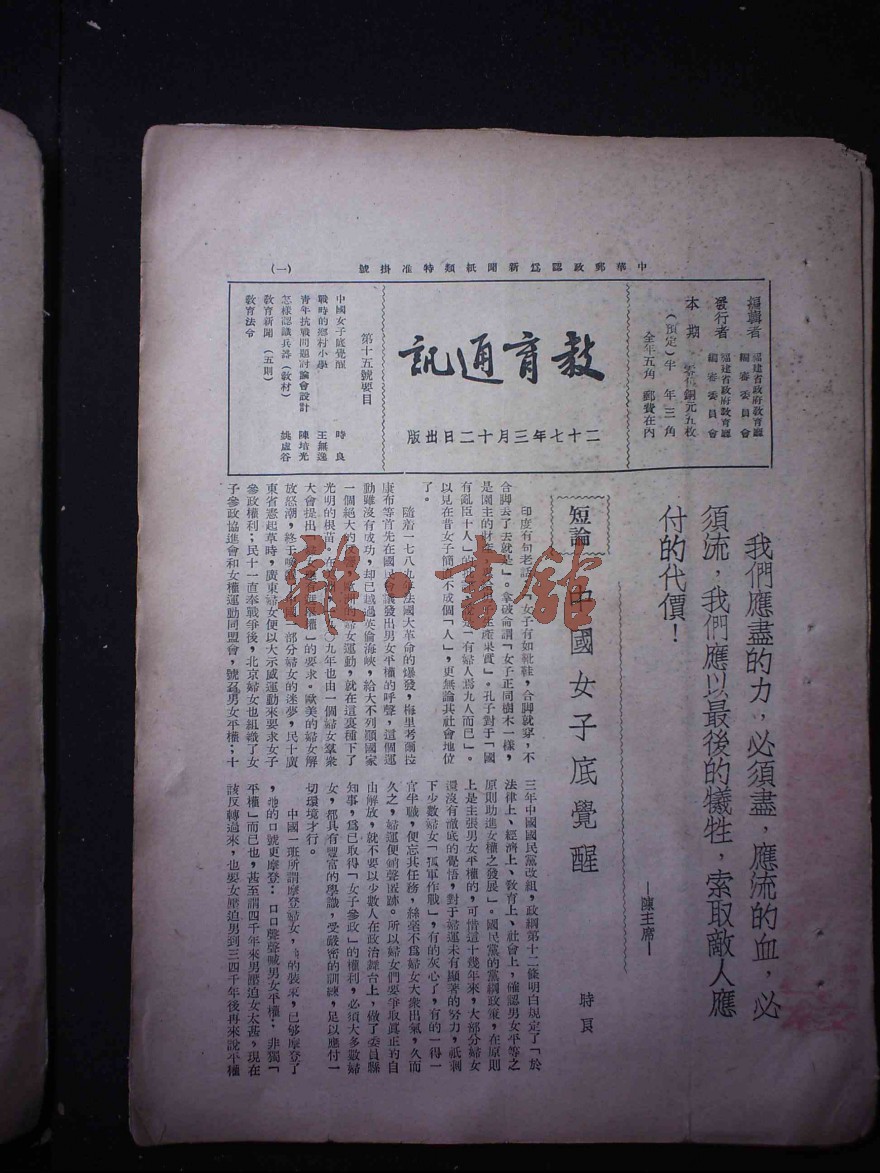 中華郵政認爲新聞紙類特准掛號
(一)
編輯者 福建省政府教育廳
編審委員會
發行者 福建省政府教育廳
編審委員會
本期 零售銅元五枚
(預定)半年三角
全年五角 郵費在內
教育通訊
二十七年三月十二日出版
第十五號要目
中國女子底覺醒 時良
戰時的鄉村小學 王無逸
青年抗戰問題討論會設計 陳培光
怎樣認識兵器(教材) 姚虛谷
教育新聞(五則)
教育法令
我們應盡的力,必須盡,應流的血,必
須流,我們應以最後的犧牲,索取敵人應
付的代價!
—陳主席—
短論
中國女子底覺醒
時良
印度有句老話「女子有如靴鞋,合脚就穿,不
合脚丢了去就是」。拿破崙謂「女子正同樹木一樣,
是園主的財產生產果實」。孔子對于「國
有亂臣十人」的是「有婦人焉九人而已」。
以見在昔女子簡直不成個「人」,更無論其社會地位
了。
隨着一七八九年法國大革命的爆發,梅里考爾拉
康布等首先在國民會議發出男女平權的呼聲,這個運
動雖沒有成功,却已越過英倫海峽,給大不列顚國家
一個絕大的婦女運動,就在這裏種下了
光明的根苗。在一九〇九年也由一個婦女羣衆
大會提出「女權」的要求。歐美的婦女解
放怒潮,終于喚一部分婦女的迷夢,民十廣
東省憲起草時,廣東婦女便以大示威運動來要求女子
參政權利;民十一直奉戰爭後,北京婦女也組織了女
子參政協進會和女權運動同盟會,號召男女平權;十
三年中國國民黨改組,政綱第十二條明白規定了「於
法律上、經濟上、教育上、社會上,確認男女平等之
原則助進女權之發展」。國民黨的黨綱政策,在原則
上是主張男女平權的,可惜這十幾年來,大部分婦女
還沒有澈底的覺悟,對于婦運未有顯著的努力,祇剩
下少數婦女「孤軍作戰」,有的灰心了,有的一得一
官半職,便忘其任務,絲毫不爲婦女大衆出氣,久而
久之,婦運便銷聲匿跡。所以婦女們要爭取眞正的自
由解放,就不要以少數人在政治舞台上,做了委員縣
知事,爲已取得「女子參政」的權利,必須大多數婦
女,都具有豐富的學識,受嚴密的訓練,足以應付一
切環境才行。
中國一班所謂摩登婦女,她的裝束,已够摩登了
,她的口號更摩登:口口聲聲喊男女平權。非獨「
平權」而已也,甚至謂四千年來男壓迫女太甚,現在
該反轉過來,也要女壓迫男到三四千年後再來說平權
雜·書館